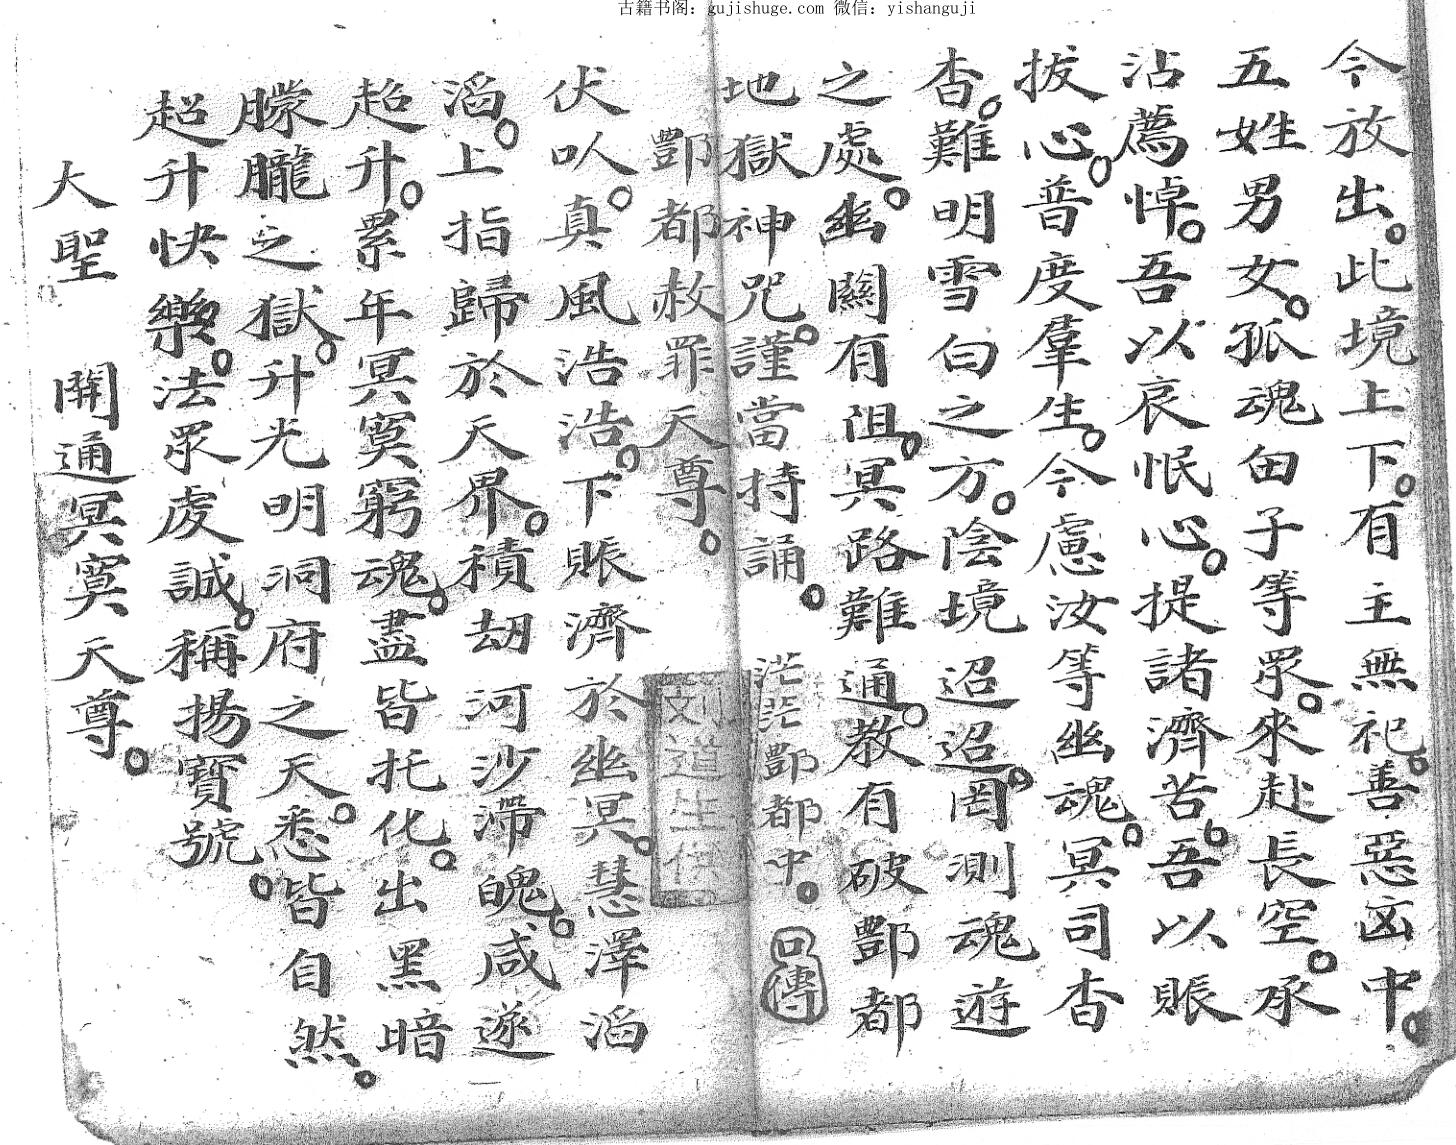 古籍书阁：gujishuge.com 微信：yishanguji
今放出。此境上下。有主無祀。善惡凶中。
五姓男女。孤魂由子等眾。來赴長空。承
沾薦悼。吾以哀愍心。提諸濟苦。吾以賑
拔心。普度羣生。今慮汝等幽魂。冥司杳
杳。難明雪白之方。陰境迢迢。罔測魂遊
之處。幽關有阻。冥路難通。教有破酆都
地獄神咒。謹當持誦。 茫茫酆都中。口傳
酆都赦罪天尊。
刘道生
伏以。真風浩浩。下賬濟於幽冥。慧澤滔
滔。上指歸於天界。積劫河沙滯魄。咸遂
超升。累年冥寞窮魂。盡皆托化。出黑暗
朦朧之獄。升光明洞府之天。悉皆自然。
超升快樂。法眾虔誠。稱揚寶號。
大聖 開通冥寞天尊。